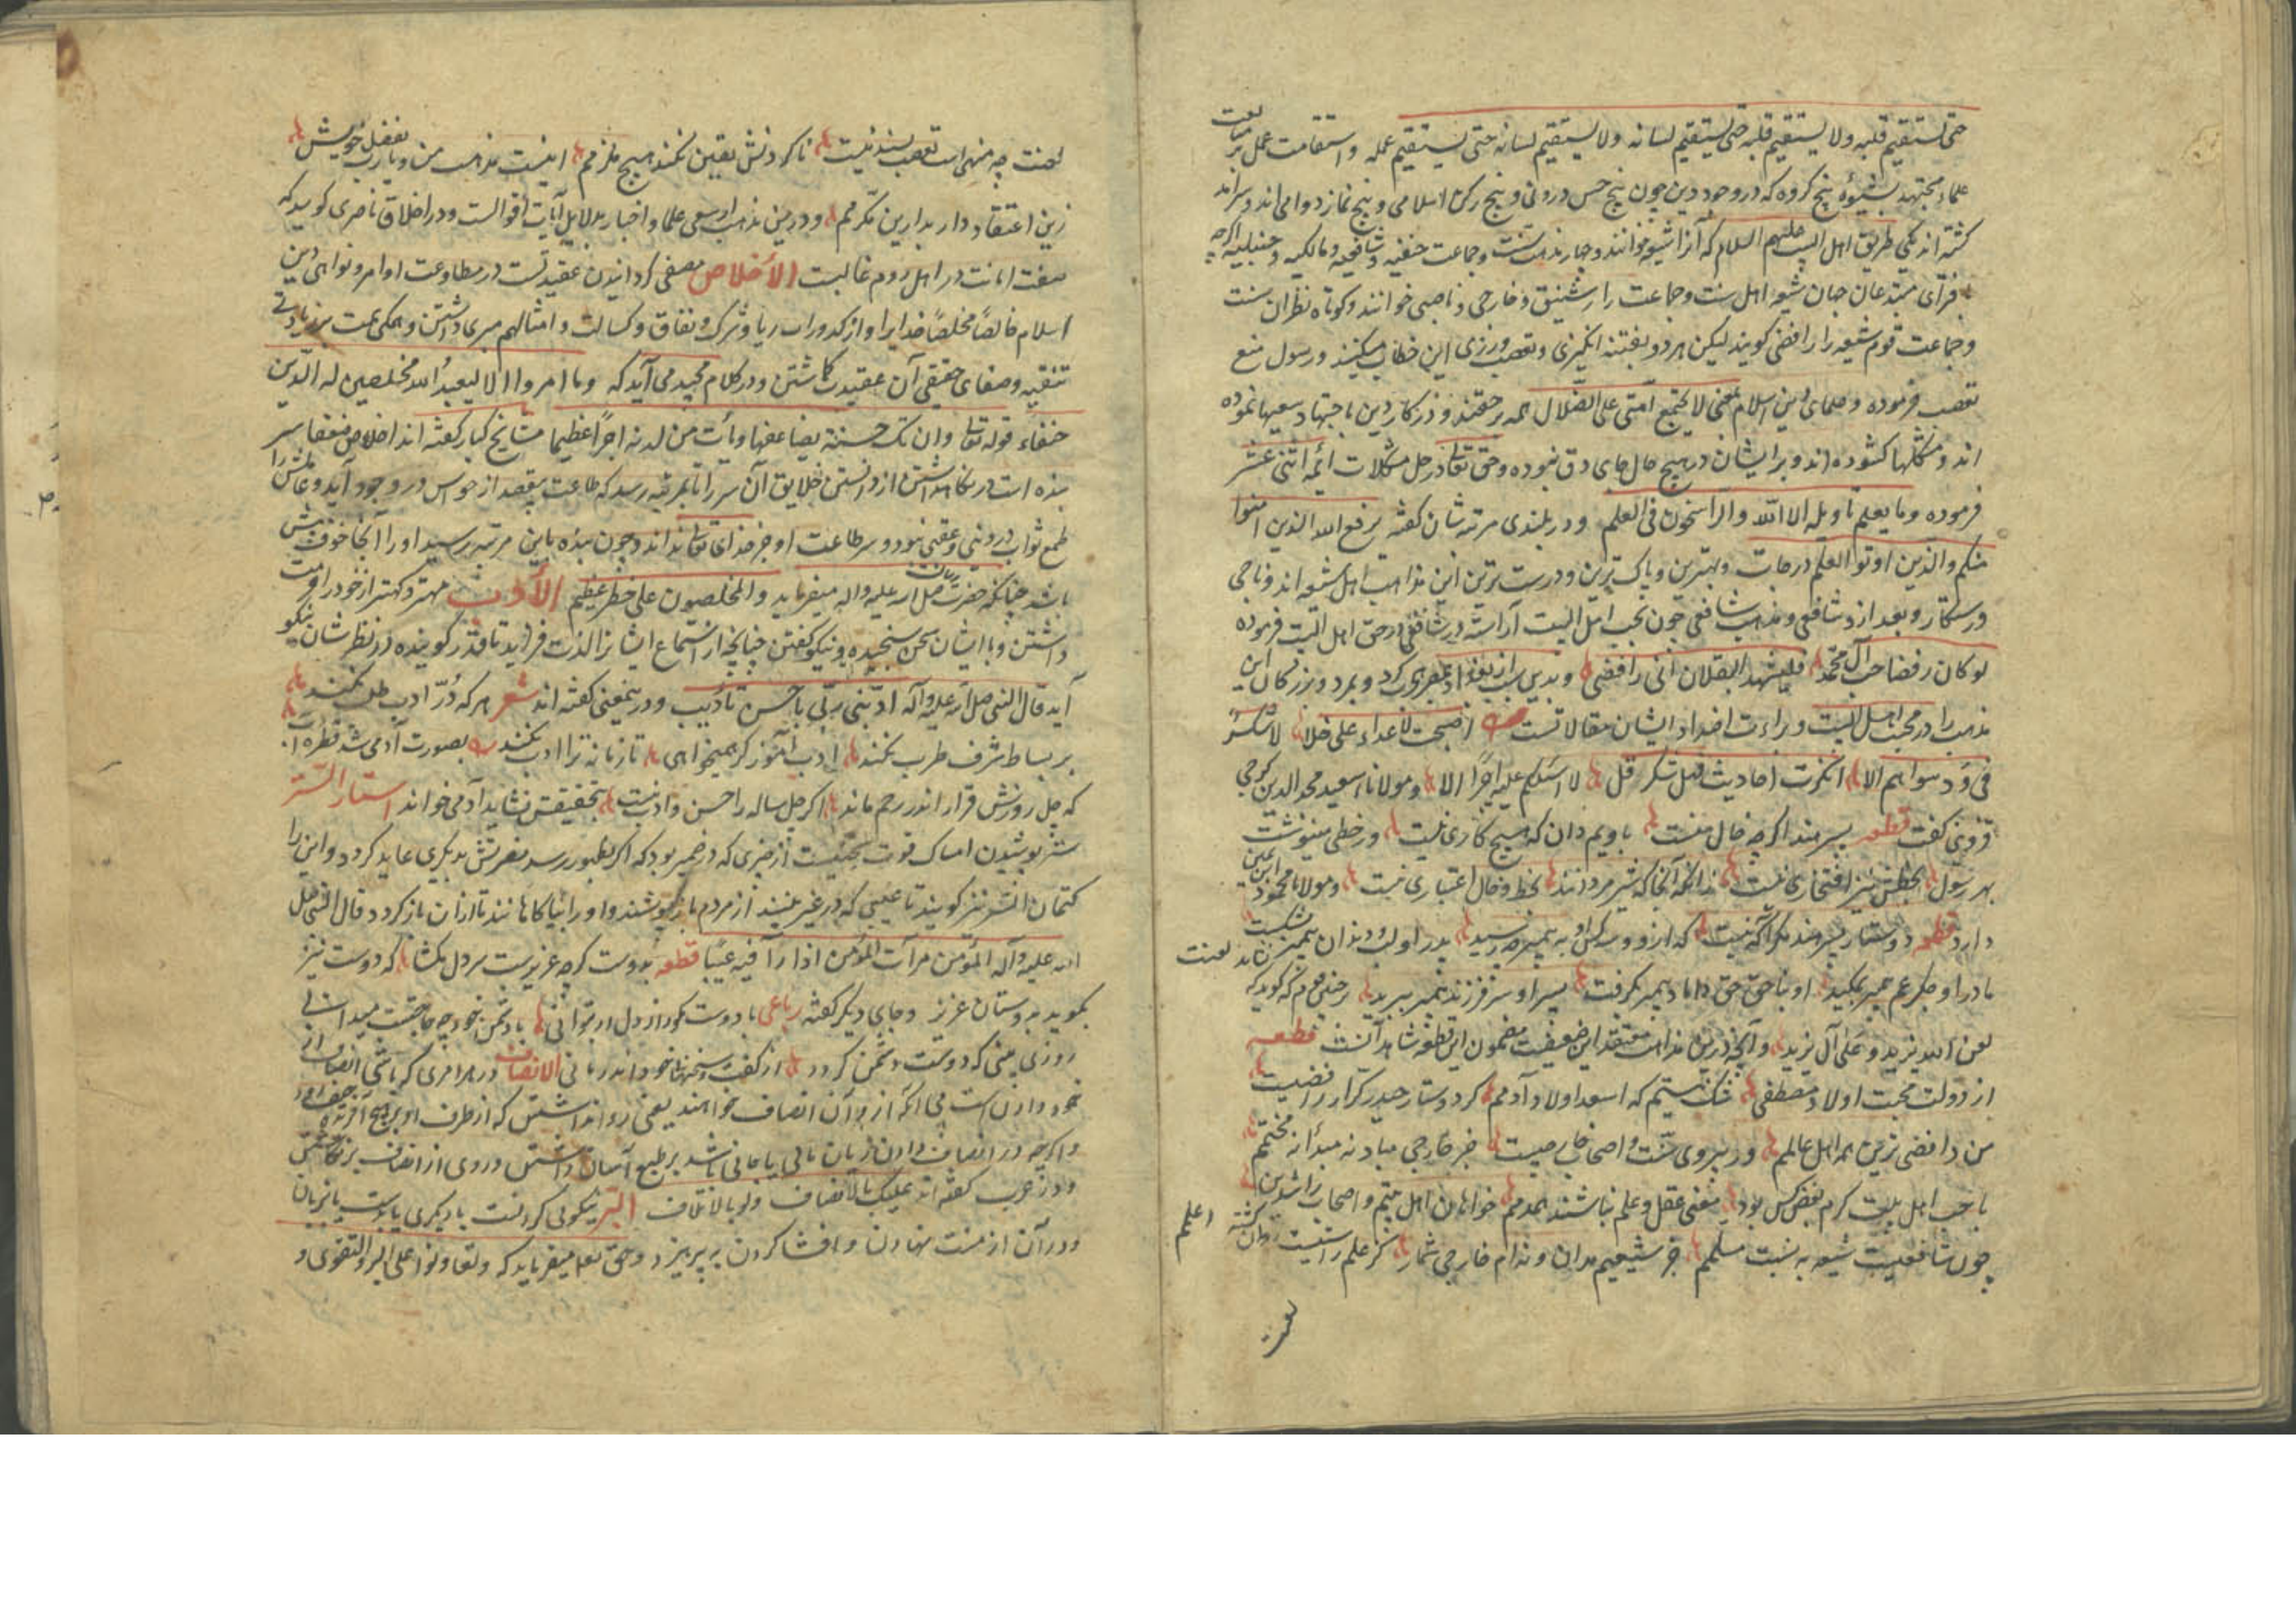 حتی یستقیم قلبه ولا یستقیم قلبه حتی یستقیم لسانه ولا یستقیم لسانه حتی یستقیم عمله واستقامت عمل بر متابعت
علماء مجتهد بشیوهٔ پنج کروه که در وجود دین چون پنج حس درونی و پنج رکن اسلامی و پنج نماز دوامی اند و سرآمد
کشته اند یکی طریق اهل البیت علیهم السلام که آنرا شیعه خوانند و چهار مذهب سنت و جماعت حنفیه و شافعیه و مالکیه و حنبلیه اکرچه
مبتدعان جهان شیعه اهل سنت و جماعت را و خارجی و ناصبی خوانند و کوتاه نظران سنت
و جماعت قوم شیعه را رافضی کویند لیکن هر دو بفتنه انکیزی و تعصب ورزی این خطاب میکنند و رسول منع
تعصب فرموده و علمای دین اسلام بمعنی لا یجتمع امتی علی الضلال همه بر حقند و در کار دین باجتهاد سعیها نموده
اند و مشکلها کشوده اند و بر ایشان در هیچ حال جای دق نبوده و حق تعالی در حل مشکلات ائمه اثنی عشر
فرموده وما یعلم تاویله الا الله والراسخون فی العلم و در بلندی مرتبه شان کفته یرفع الله الذین امنوا
منکم والذین اوتوا العلم درجات و بهترین و پاک ترین و درست ترین این مذاهب اهل شیعه اند و ناجی
و رستکار و بعد ازو شافعی و مذهب شافعی چون بحب اهل البیت آراسته در حق اهل البیت فرموده
لو کان رفضا حب آل محمد فلیشهد الثقلان انی رافضی و بدین سبب از بغداد بمصر هجرت کرد و بمرد و بزرکان این
مذهب را در محبت اهل البیت و براءت اضداد ایشان مقالاتست اصبحت لاعداء علی خلا لا شکر
فی ود سواهم الا انکرت احادیث قل لا اسئلکم علیه اجرا الا و مولانا سعید مجد الدین کرجی
قزوینی کفت قطعه پسر هند اکرچه خال منست باویم دان که هیچ کاری نیست ور خطی مینوشت
بهر رسول بخطش نیز افتخاری نیست زانکه آنجا که شیر مردانند بخط و خال اعتباری نیست و مولانا محمود ابن یمین
دارد قطعه دوستدار پسر هند مکر آکه نیست که ازو و سه کس او به پیمبر چه رسید پدر او لب و دندان پیمبر بشکست
مادر او جکر عم پیمبر بمکید او بناحق حق داماد پیمبر بکرفت پسر او سر فرزند پیمبر ببرید بر چنین قوم که کوید که نشاید لعنت
لعن الله یزید و علی آل یزید و آنچه درین مذاهب معتقد این ضعیفست مضمون این قطعه شاهد آنست قطعه
از دولت محبت اولاد مصطفی شک نیستم که اسعد اولاد آدمم کر دوستدار حیدر کرار رافضیست
من رافضی ترین همه اهل عالمم ور پیروی سنت و اصحاب خارجیست جز خارجی مباد نه مبدأ نه مختمم
با حب اهل بیت کرم بغض کس بود مفتی عقل و علم نباشند همدمم خواهان اهل بیتم و اصحاب راشدین
چون شافعیست شیعه به نسبت مسلمم جز شیعیم مدان و ندانم خارجی شمار کز علم راستیست روان کشته اعلمم
لعنت چه منهی است تعصب پسند نیست تا کردنش یقین نکند هیچ ملزمم اینست مذهب من و یا رب بفضل خویش
زین اعتقاد دار بدارین مکرمم و درین مذهب سعی علما و اخبار بدلایل آیات اقوالست و در اخلاق ناصری کوید که
صفت امانت در اهل روم غالبست الاخلاص مصفی کردانیدن عقیدتست در مطاوعت اوامر و نواهی دین
اسلام خالصا مخلصا خدایرا و از کدورات ریا و شرک و نفاق و کسالت و امثالهم مبری داشتن و همکی همت بر زیادتی
تنقیه و صفای حقیقی آن عقیدت کماشتن و در کلام مجید می آید که وما امروا الا لیعبدوا الله مخلصین له الدین
حنفاء قوله تعالی وان تک حسنة یضاعفها ویأت من لدنه اجرا عظیما مشایخ کبار کفته اند اخلاص سر
بنده است در نکاهداشتن از دانستن خلایق آن سر را تا بمرتبه رسد که طاعت بیقصد از حواس در وجود آید و عاملش را
طمع ثواب دنیوی و عقبی نبود و سر طاعت او جز خدای تعالی نداند و چون بنده باین مرتبه رسید او را آنجا خوف بیش
باشد چنانکه حضرت رسالت صلی الله علیه واله میفرماید والمخلصون علی خطر عظیم الادب مهتر و کهتر از خود را حرمت
داشتن و با ایشان سخن سنجیده و نیکو کفتن چنانچه از استماع ایشانرا لذت فزاید تا قدر کوینده در نظر شان نیکو
آید قال النبی صلی الله علیه وآله ادبنی ربی باحسن تأدیب و درینمعنی کفته اند شعر هر که درّ ادب طلب نکند
بر بساط شرف طرب نکند ادب آموز کر همیخواهی تا زمانه ترا ادب نکند بصورت آدمی شد قطره آب
که چل روزش قرار اندر رحم ماند اکر چل ساله را حسن و ادب نیست بتحقیقش نشاید آدمی خواند استار الستر
ستر پوشیدن امساک قوت نیت از چیزی که در ضمیر بود که اکر بظهور رسد مضرتش بدیکری عاید کردد و این را
کتمان السر نیز کویند تا عیبی که در غیر بینند از مردم باز پوشند و او را تا ازان باز کردد قال النبی صلی
الله علیه وآله المؤمن مرآت المؤمن اذا رآ فیه عیبا قطعه بدوست کرچه عزیزست سر دل مکشا که دوست نیز
بکوید بدوستان عزیز و جای دیکر کفته رباعی با دوست مکو راز دل ار بتوانی با دشمن خود چه حاجتست میدانی
روزی بینی که دوست دشمن کردد از کفت و خود اندر مانی الانصاف در هر امری کر باشی انصاف از
خود دادن است بی آنکه ازو آن انصاف خواهند یعنی روا نداشتن که از طرف او بر هیچ آفریده حیف رود
و اکرچه در انصاف دادن زیان مالی یا جانی باشد بر طبع آسان داشتن و روی از انصاف بر نکاشتن
و در عرب کفته اند علیک بالانصاف ولو بالاتلاف البر نیکوئی کردنست با دیکری یا بدست یا بزبان
و در آن از منت نهادن و افشا کردن به پرهیزد و حق تعالی میفرماید که وتعاونوا علی البر والتقوی و